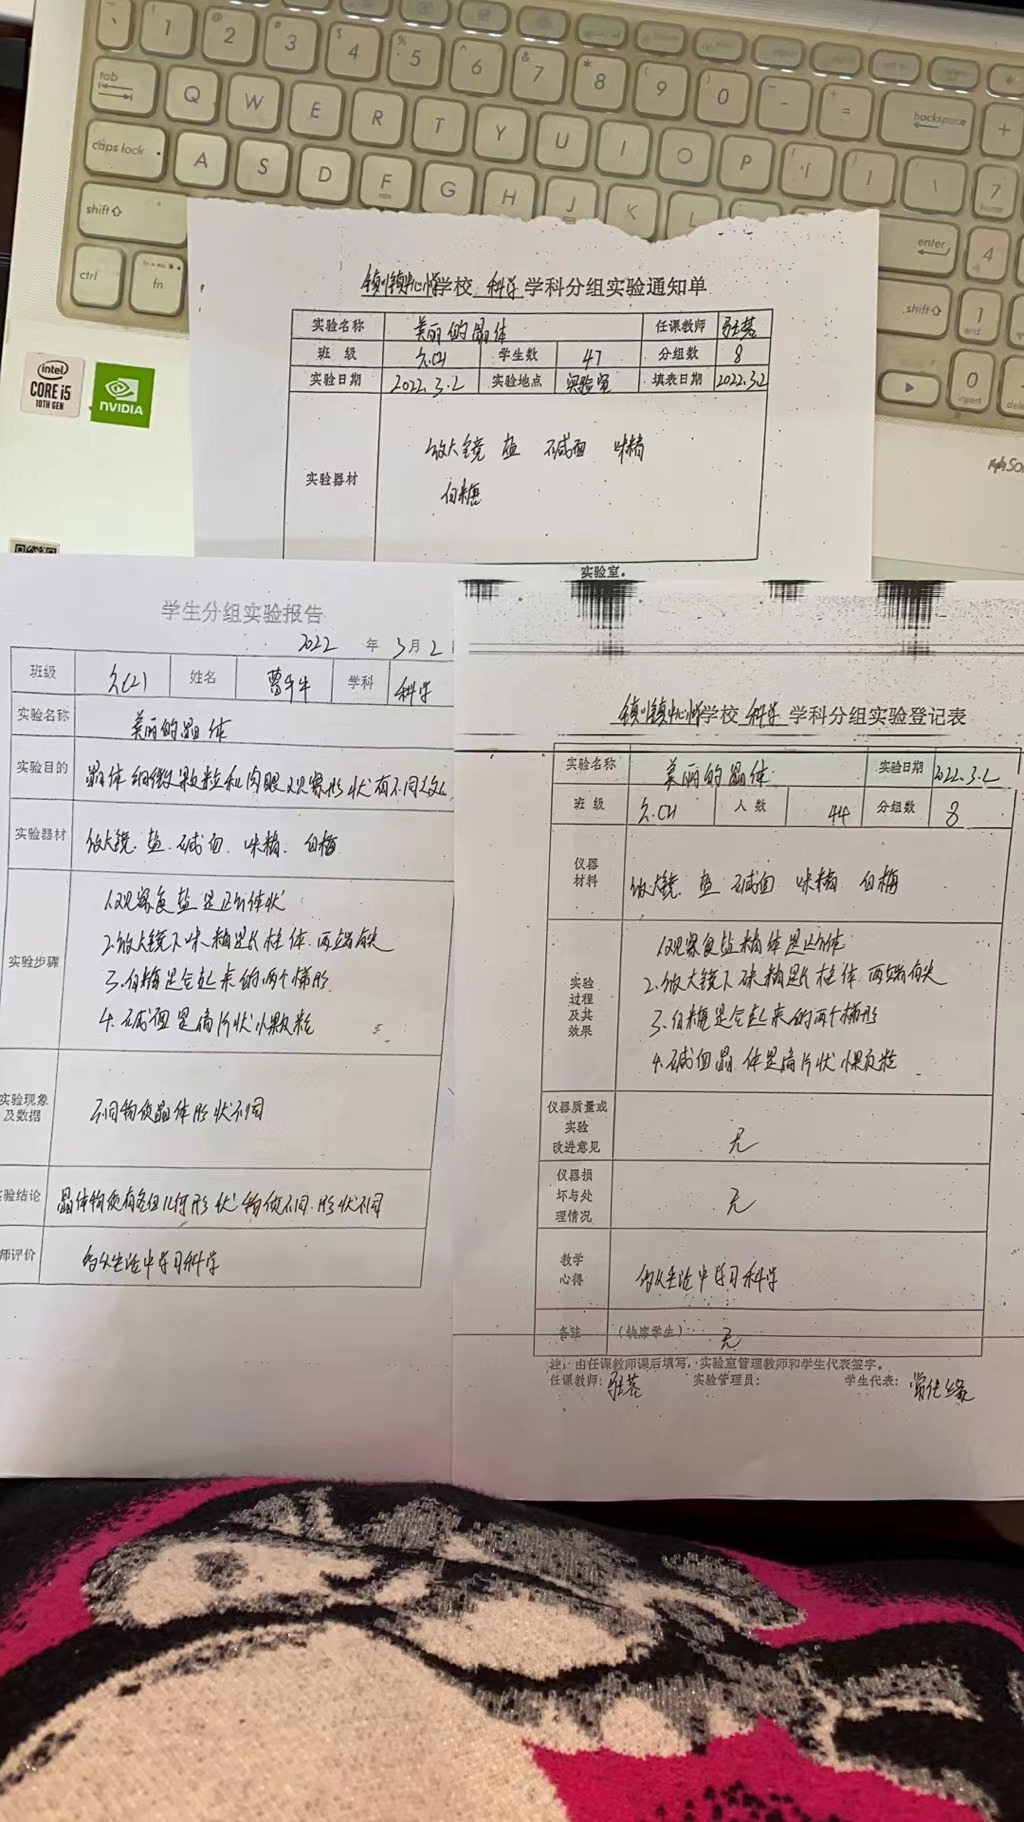 1 2 3 4 5 6 7 8 9 0
tab Q W E R T Y U I O P
backspace
caps lock A S D F G H J K L
enter
shift
shift
ctrl fn
intel
CORE i5
10TH GEN
NVIDIA
学校 科学 学科分组实验通知单
实验名称 美丽的晶体 任课教师
班 级 学生数 47 分组数 8
实验日期 2022.3.2 实验地点 实验室 填表日期 2022.3.2
实验器材
放大镜 盐 碱面 味精
白糖
实验室。
学生分组实验报告
2022 年 3月2
班级 姓名 学科 科学
实验名称 美丽的晶体
实验目的 晶体细微颗粒和肉眼观察形状有不同
实验器材 放大镜. 盐. 碱面. 味精. 白糖
实验步骤
1.观察食盐是立方体状
2.放大镜下味精是长柱体.两端有尖
3.白糖是合起来的两个梯形.
4.碱面是扁片状小颗粒
实验现象
及数据
不同物质晶体形状不同
验结论 晶体物质有各自几何形状 物质不同.形状不同
师评价 多从生活中学习科学
学校 科学 学科分组实验登记表
实验名称 美丽的晶体 实验日期 2022.3.2
班 级 人 数 44 分组数 8
仪器
材料
放大镜 盐 碱面 味精 白糖
实验
过程
及其
效果
1.观察食盐精体是立方体
2.放大镜下味精是长柱体.两端有尖
3.白糖是合起来的两个梯形
4.碱面晶体是扁片状小颗粒
仪器质量或
实验
改进意见
无
仪器损
坏与处
理情况
无
教学
心得
多从生活中学习科学
备注 (缺席学生) 无
注：由任课教师课后填写，实验室管理教师和学生代表签字。
任课教师： 实验管理员： 学生代表：